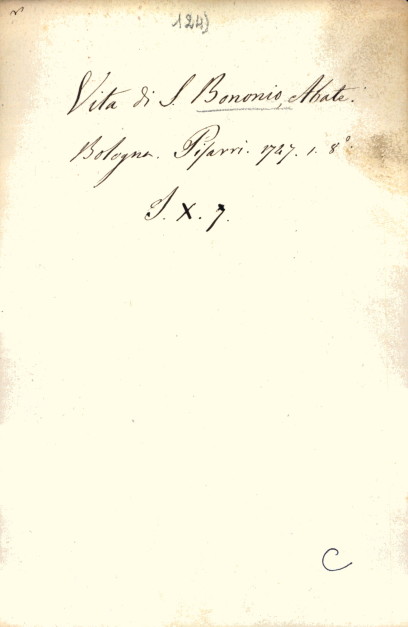 124)
Vita di S. Bononio, Abate.
Bologna. Pisarri. 1747. 1. 8°.
S. X. 7.
C